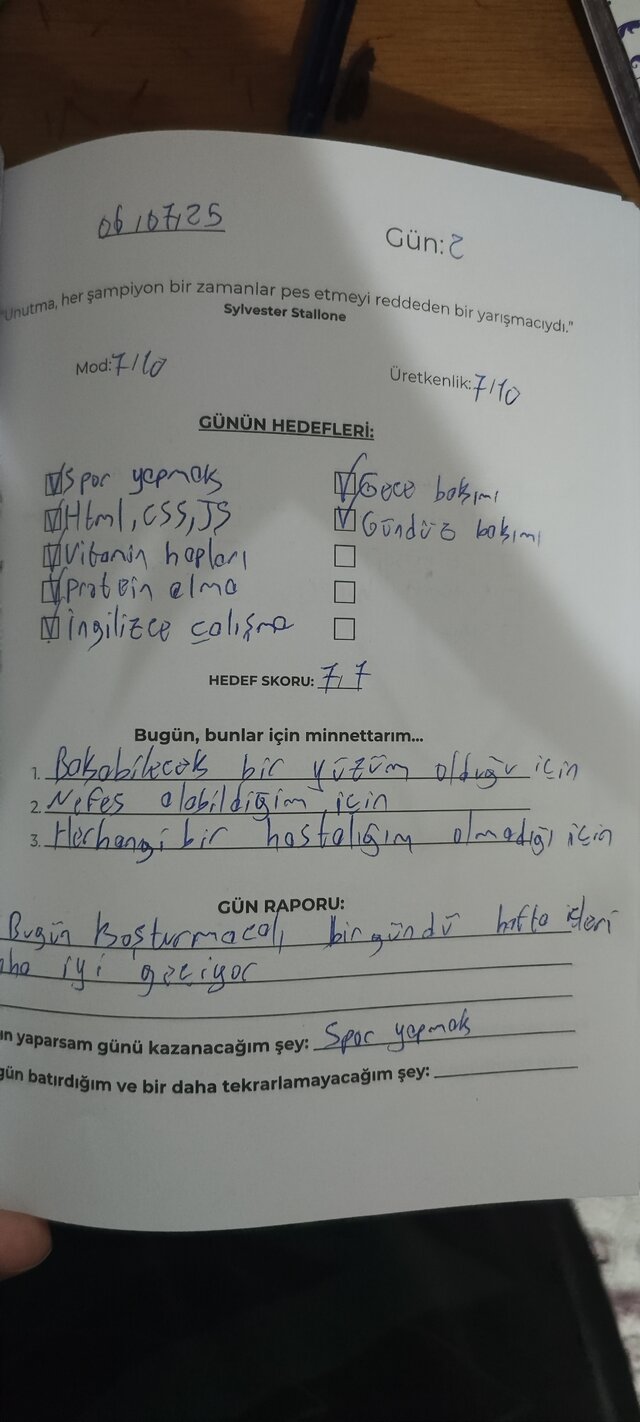 06/07/25
Gün: 2
"Unutma, her şampiyon bir zamanlar pes etmeyi reddeden bir yarışmacıydı."
Sylvester Stallone
Mod: 7/10
Üretkenlik: 7/10
GÜNÜN HEDEFLERİ:
Spor yapmak
Html, CSS, JS
Vitamin hapları
Protein alma
İngilizce çalışma
Gece bakımı
Gündüz bakımı
HEDEF SKORU: 7/7
Bugün, bunlar için minnettarım...
1. Bakabilecek bir yüzüm olduğu için
2. Nefes alabildiğim için
3. Herhangi bir hastalığım olmadığı için
GÜN RAPORU:
Bugün Koşturmacalı bir gündü hafta içleri
iyi geçiyor
yaparsam günü kazanacağım şey: Spor yapmak
batırdığım ve bir daha tekrarlamayacağım şey: